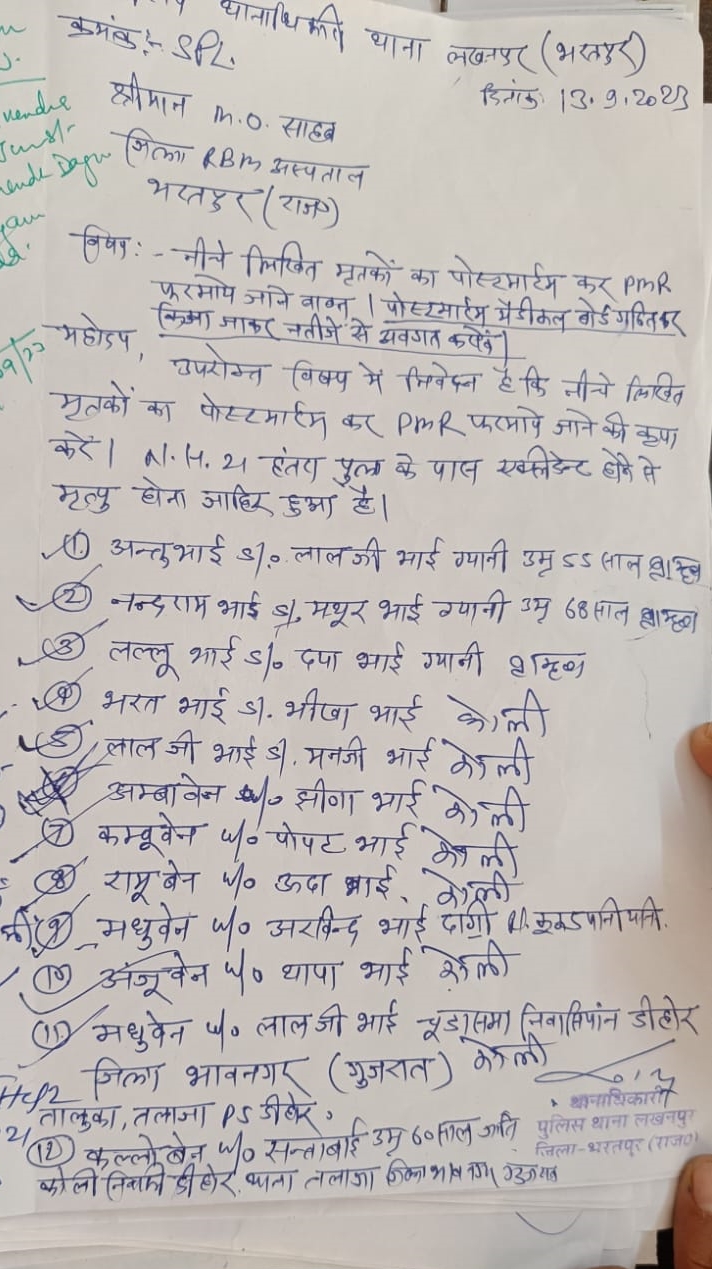 थानाधिकारी थाना लखनपुर (भरतपुर)
क्रमांक:- SPL.
दिनांक: 13.9.2023
श्रीमान M.O. साहब
जिला RBM अस्पताल
भरतपुर (राज०)
विषय:- नीचे लिखित मृतकों का पोस्टमार्टम कर PMR
फरमाये जाने बाबत। पोस्टमार्टम मैडीकल बोर्ड गठित कर
किया जाकर नतीजे से अवगत करावें।
महोदय,
उपरोक्त विषय में निवेदन है कि नीचे लिखित
मृतकों का पोस्टमार्टम कर PMR फरमाये जाने की कृपा
करें। N.H. 21 हंतरा पुल के पास एक्सीडेन्ट होने से
मृत्यु होना जाहिर हुआ है।
(1) अन्तुभाई S/o लालजी भाई ग्यानी उम्र 55 साल
(2) नन्दराम भाई S/o मथूर भाई ग्यानी उम्र 68 साल
(3) लल्लू भाई S/o दया भाई ग्यानी
(4) भरत भाई S/o भीखा भाई कोली
(5) लालजी भाई S/o मनजी भाई कोली
अम्बावेन w/o झीगा भाई कोली
(7) कम्बूवेन w/o पोपट भाई कोली
(8) रामूबेन w/o ऊदा भाई कोली
(9) मधुवेन w/o अरविन्द भाई दागी
(10) अंजूवेन w/o थापा भाई कोली
(11) मधुवेन w/o लालजी भाई चूडासमा निवासियांन डीहोर
जिला भावनगर (गुजरात) कोली
तालुका, तलाजा PS डीहोर
थानाधिकारी
पुलिस थाना लखनपुर
जिला-भरतपुर (राज०)
(12) कल्लोबेन w/o सन्ताबाई उम्र 60 साल जाति
कोली निवासी डीहोर थाना तलाजा जिला भावनगर गुजरात